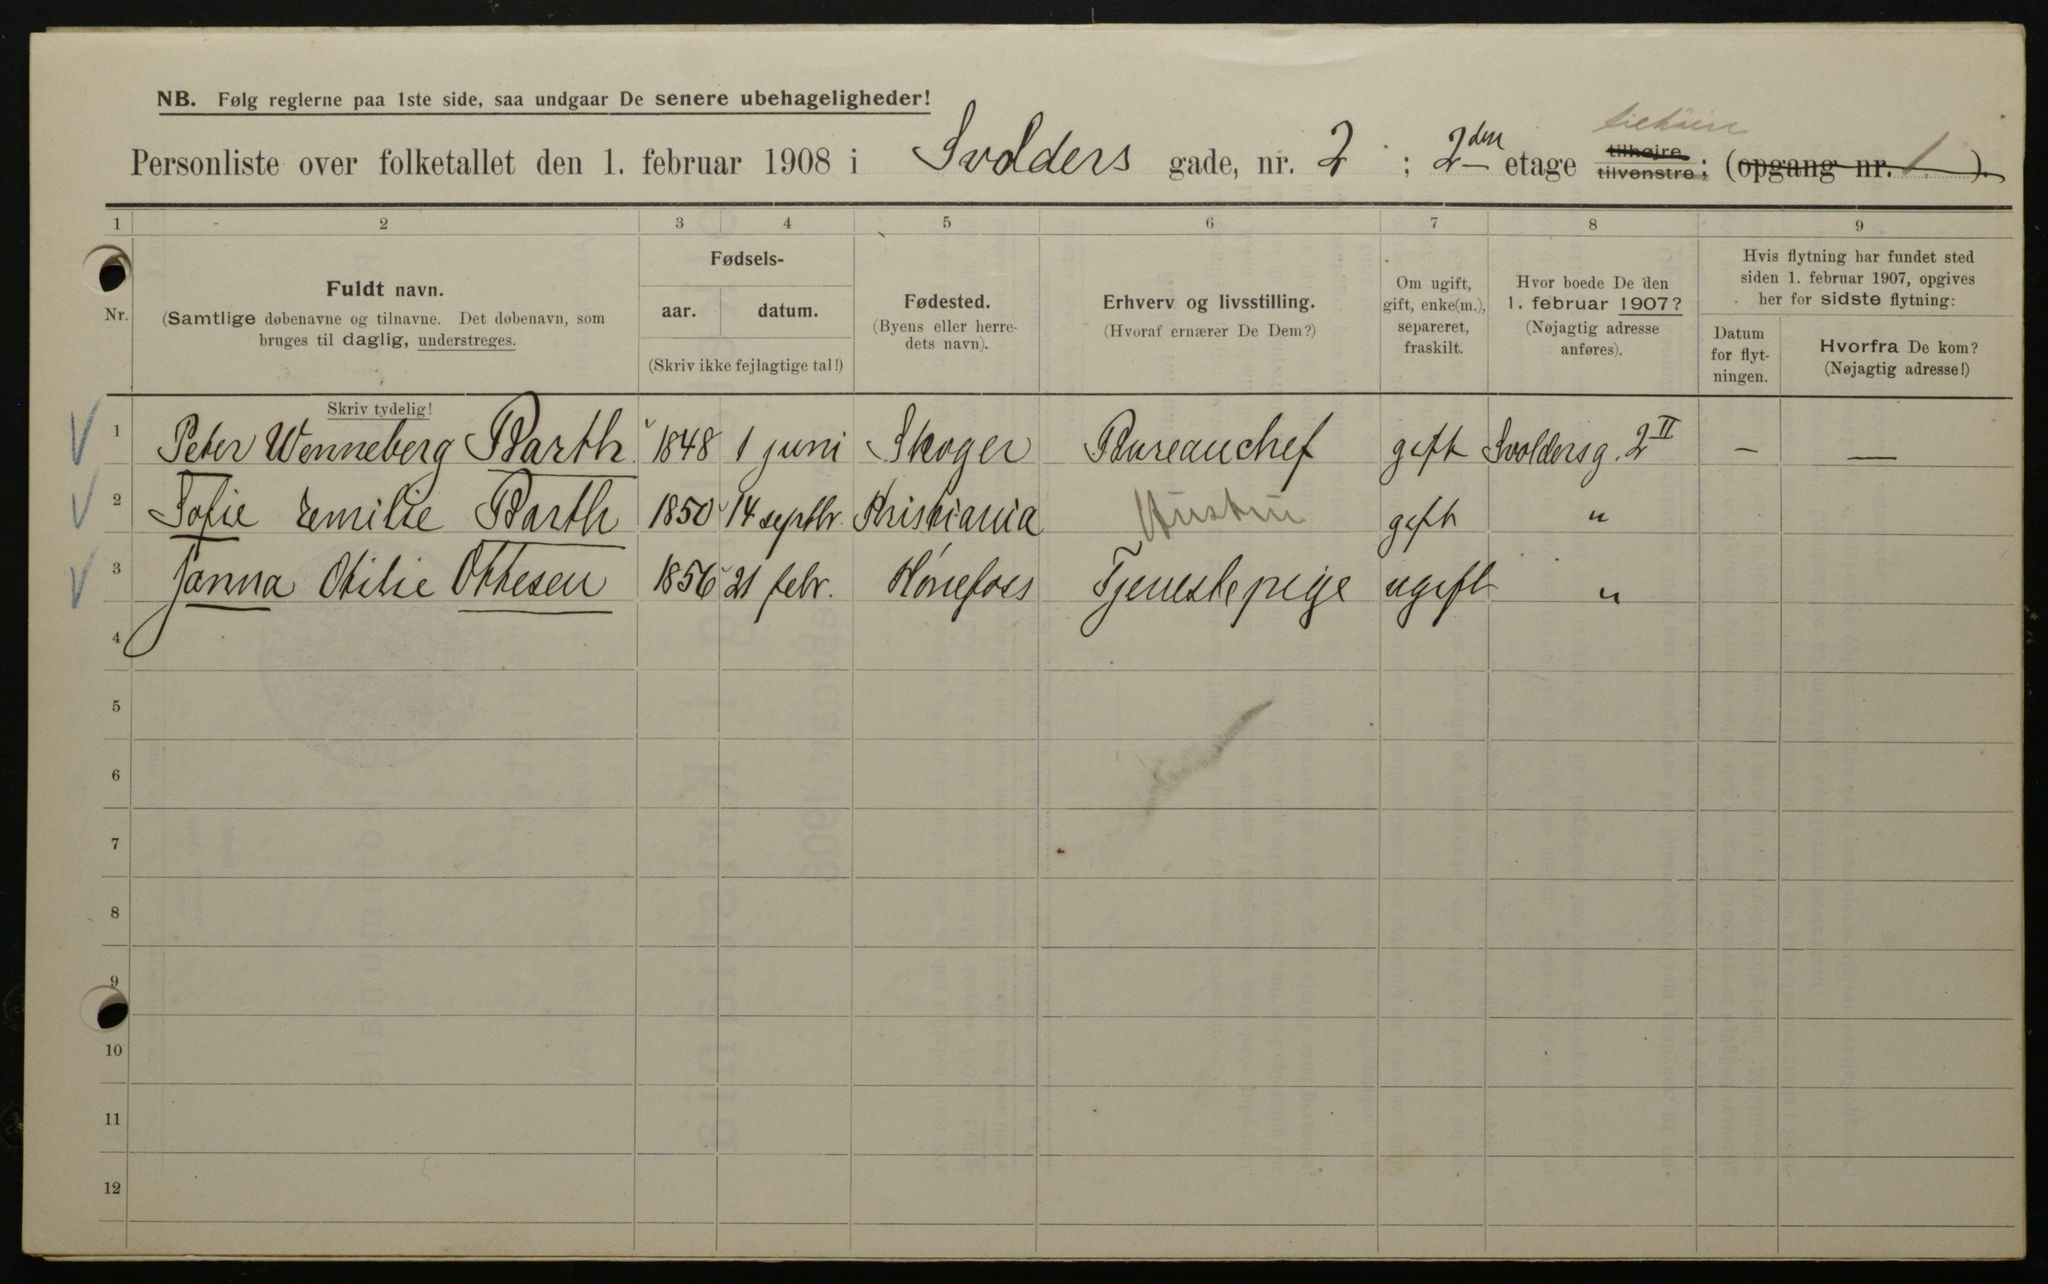 NB. Følg reglerne paa 1ste side, saa undgaar De senere ubehageligheder!
Personliste over folketallet den 1. februar 1908 i Svolders gade, nr. 2 ; 2den etage tilhøjre tilvenstre; (opgang nr. 1. ).
1 2 3 4 5 6 7 8 9
Nr.
Fuldt navn.
(Samtlige døbenavne og tilnavne. Det døbenavn, som
bruges til daglig, understreges.
Fødsels-
aar. datum.
(Skriv ikke fejlagtige tal!)
Fødested.
(Byens eller herre-
dets navn).
Erhverv og livsstilling.
(Hvoraf ernærer De Dem?)
Om ugift,
gift, enke(m.),
separeret,
fraskilt.
Hvor boede De den
1. februar 1907?
(Nøjagtig adresse
anføres).
Hvis flytning har fundet sted
siden 1. februar 1907, opgives
her for sidste flytning:
Datum
for flyt-
ningen.
Hvorfra De kom?
(Nøjagtig adresse!)
Skriv tydelig!
1 Peter Wenneberg Barth 1848 1 juni Skoger Bureauchef gift Svoldersg. 2 II — —
2 Sofie Emilie Barth 1850 14 septbr. Kristiania Hustru gift "
3 Janna Otilie Ottesen 1856 21 febr. Hønefoss Tjenestepige ugift "
4
5
6
7
8
9
10
11
12